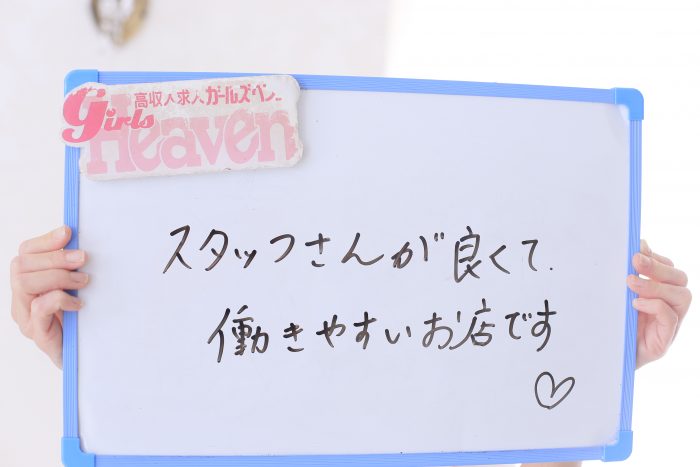 高収入求人ガールズヘブン
girls
Heaven
スタッフさんが良くて.
働きやすいお店です
♡